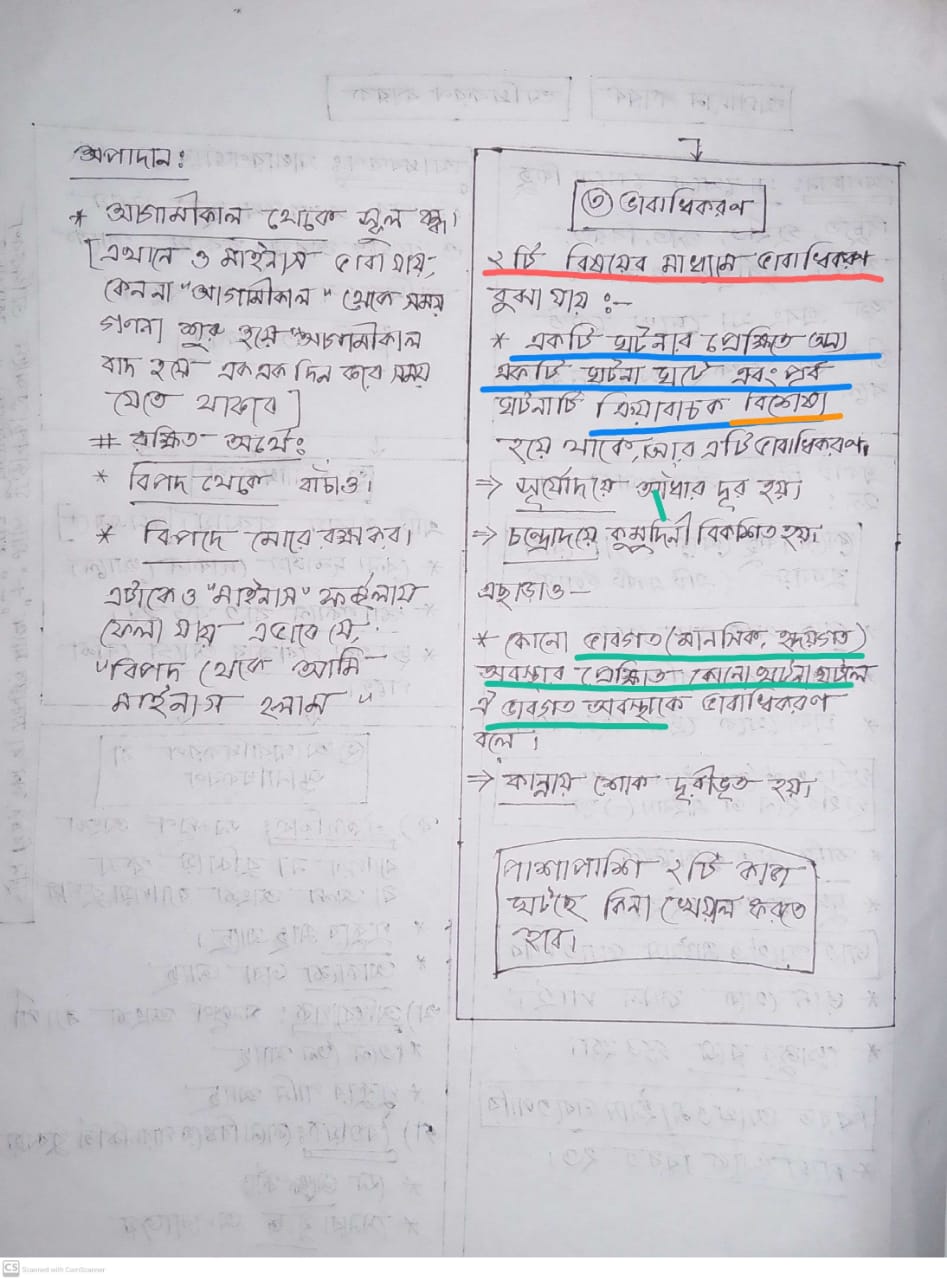 অপাদান:
* আগামীকাল থেকে স্কুল বন্ধ।
[এখানে ও মাইনাস ভাবা যায়,
কেননা "আগামীকাল" থেকে সময়
গণনা শুরু হয়ে "আগামীকাল
বাদ হয়ে এক এক দিন করে সময়
যেতে থাকবে]
# রক্ষিত অর্থে:
* বিপদ থেকে বাঁচাও।
* বিপদে মোরে রক্ষা কর।
এটাকে ও "মাইনাস" ফর্মুলায়
ফেলা যায় এভাবে যে,
"বিপদ থেকে আমি
মাইনাস হলাম"
৩ ভাবাধিকরণ
২টি বিষয়ের মাধ্যমে ভাবাধিকরণ
বুঝা যায় :-
* একটি ঘটনার প্রেক্ষিতে অন্য
একটি ঘটনা ঘটে এবং পূর্ব
ঘটনাটি ক্রিয়াবাচক বিশেষ্য
হয়ে থাকে, আর এটি ভাবাধিকরণ।
⇒ সূর্যোদয়ে আঁধার দূর হয়।
⇒ চন্দ্রোদয়ে কুমুদিনী বিকশিত হয়।
এছাড়াও-
* কোনো ভাবগত (মানসিক, হৃদয়গত)
অবস্থার প্রেক্ষিতে কোনো ঘটনা ঘটলে
ঐ ভাবগত অবস্থাকে ভাবাধিকরণ
বলে।
⇒ কান্নায় শোক দূরীভূত হয়।
পাশাপাশি ২টি কাজ
ঘটছে কিনা খেয়াল করতে
হবে।
CS Scanned with CamScanner